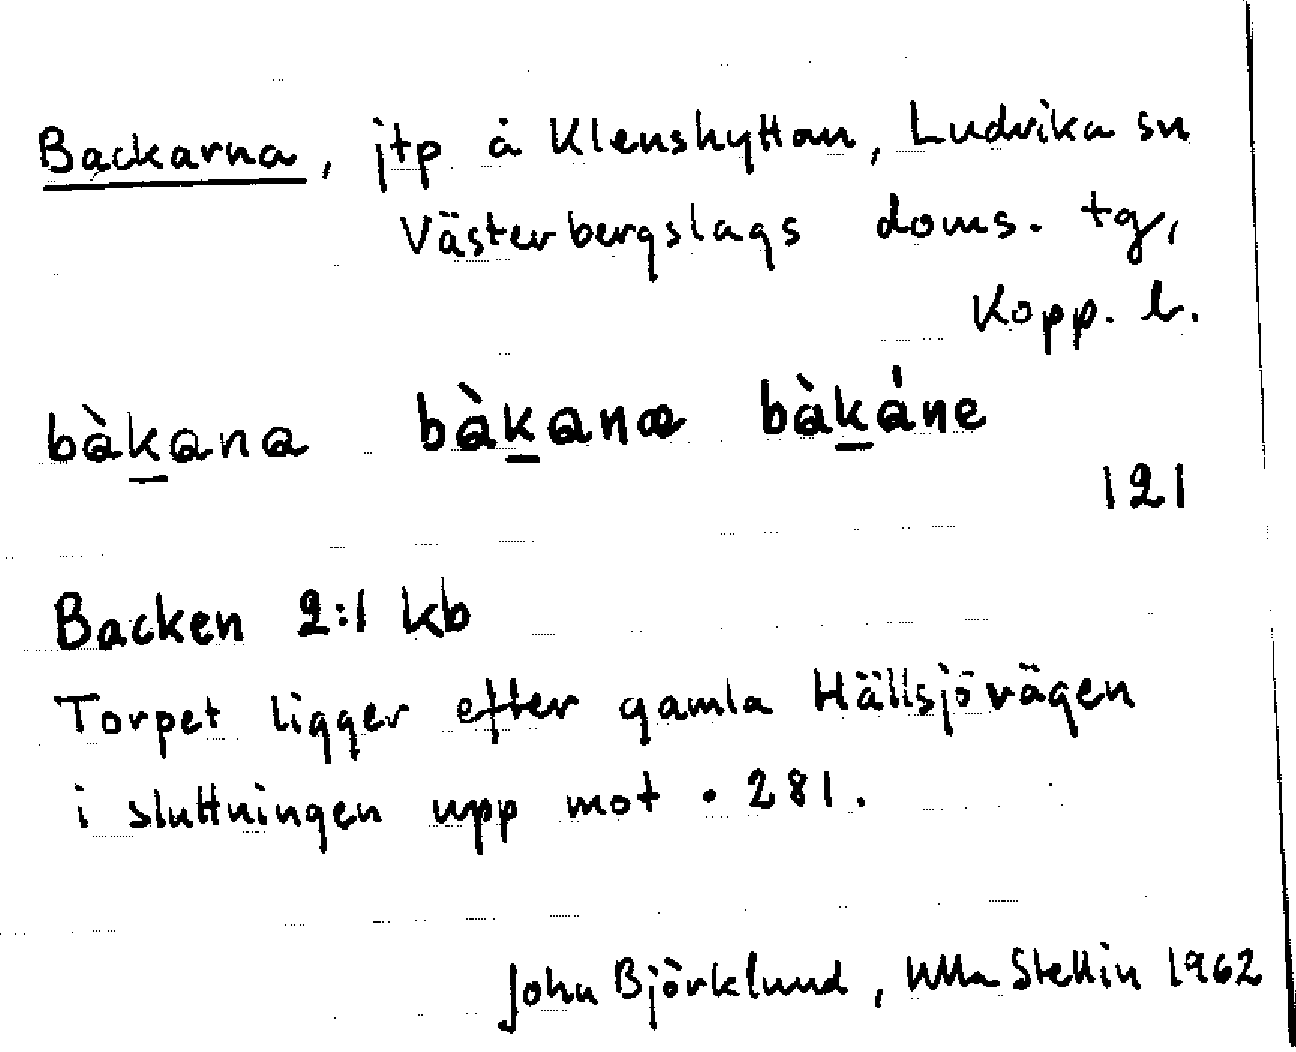 Backarna, jtp å Klenshyttan, Ludvika sn
Västerbergslags doms. tg,
Kopp. l.
bàkana bàkanæ bàkáne
121
Backen 2:1 kb
Torpet ligger efter gamla Hällsjövägen
i sluttningen upp mot • 281.
John Björklund, Ulla Stellin 1962